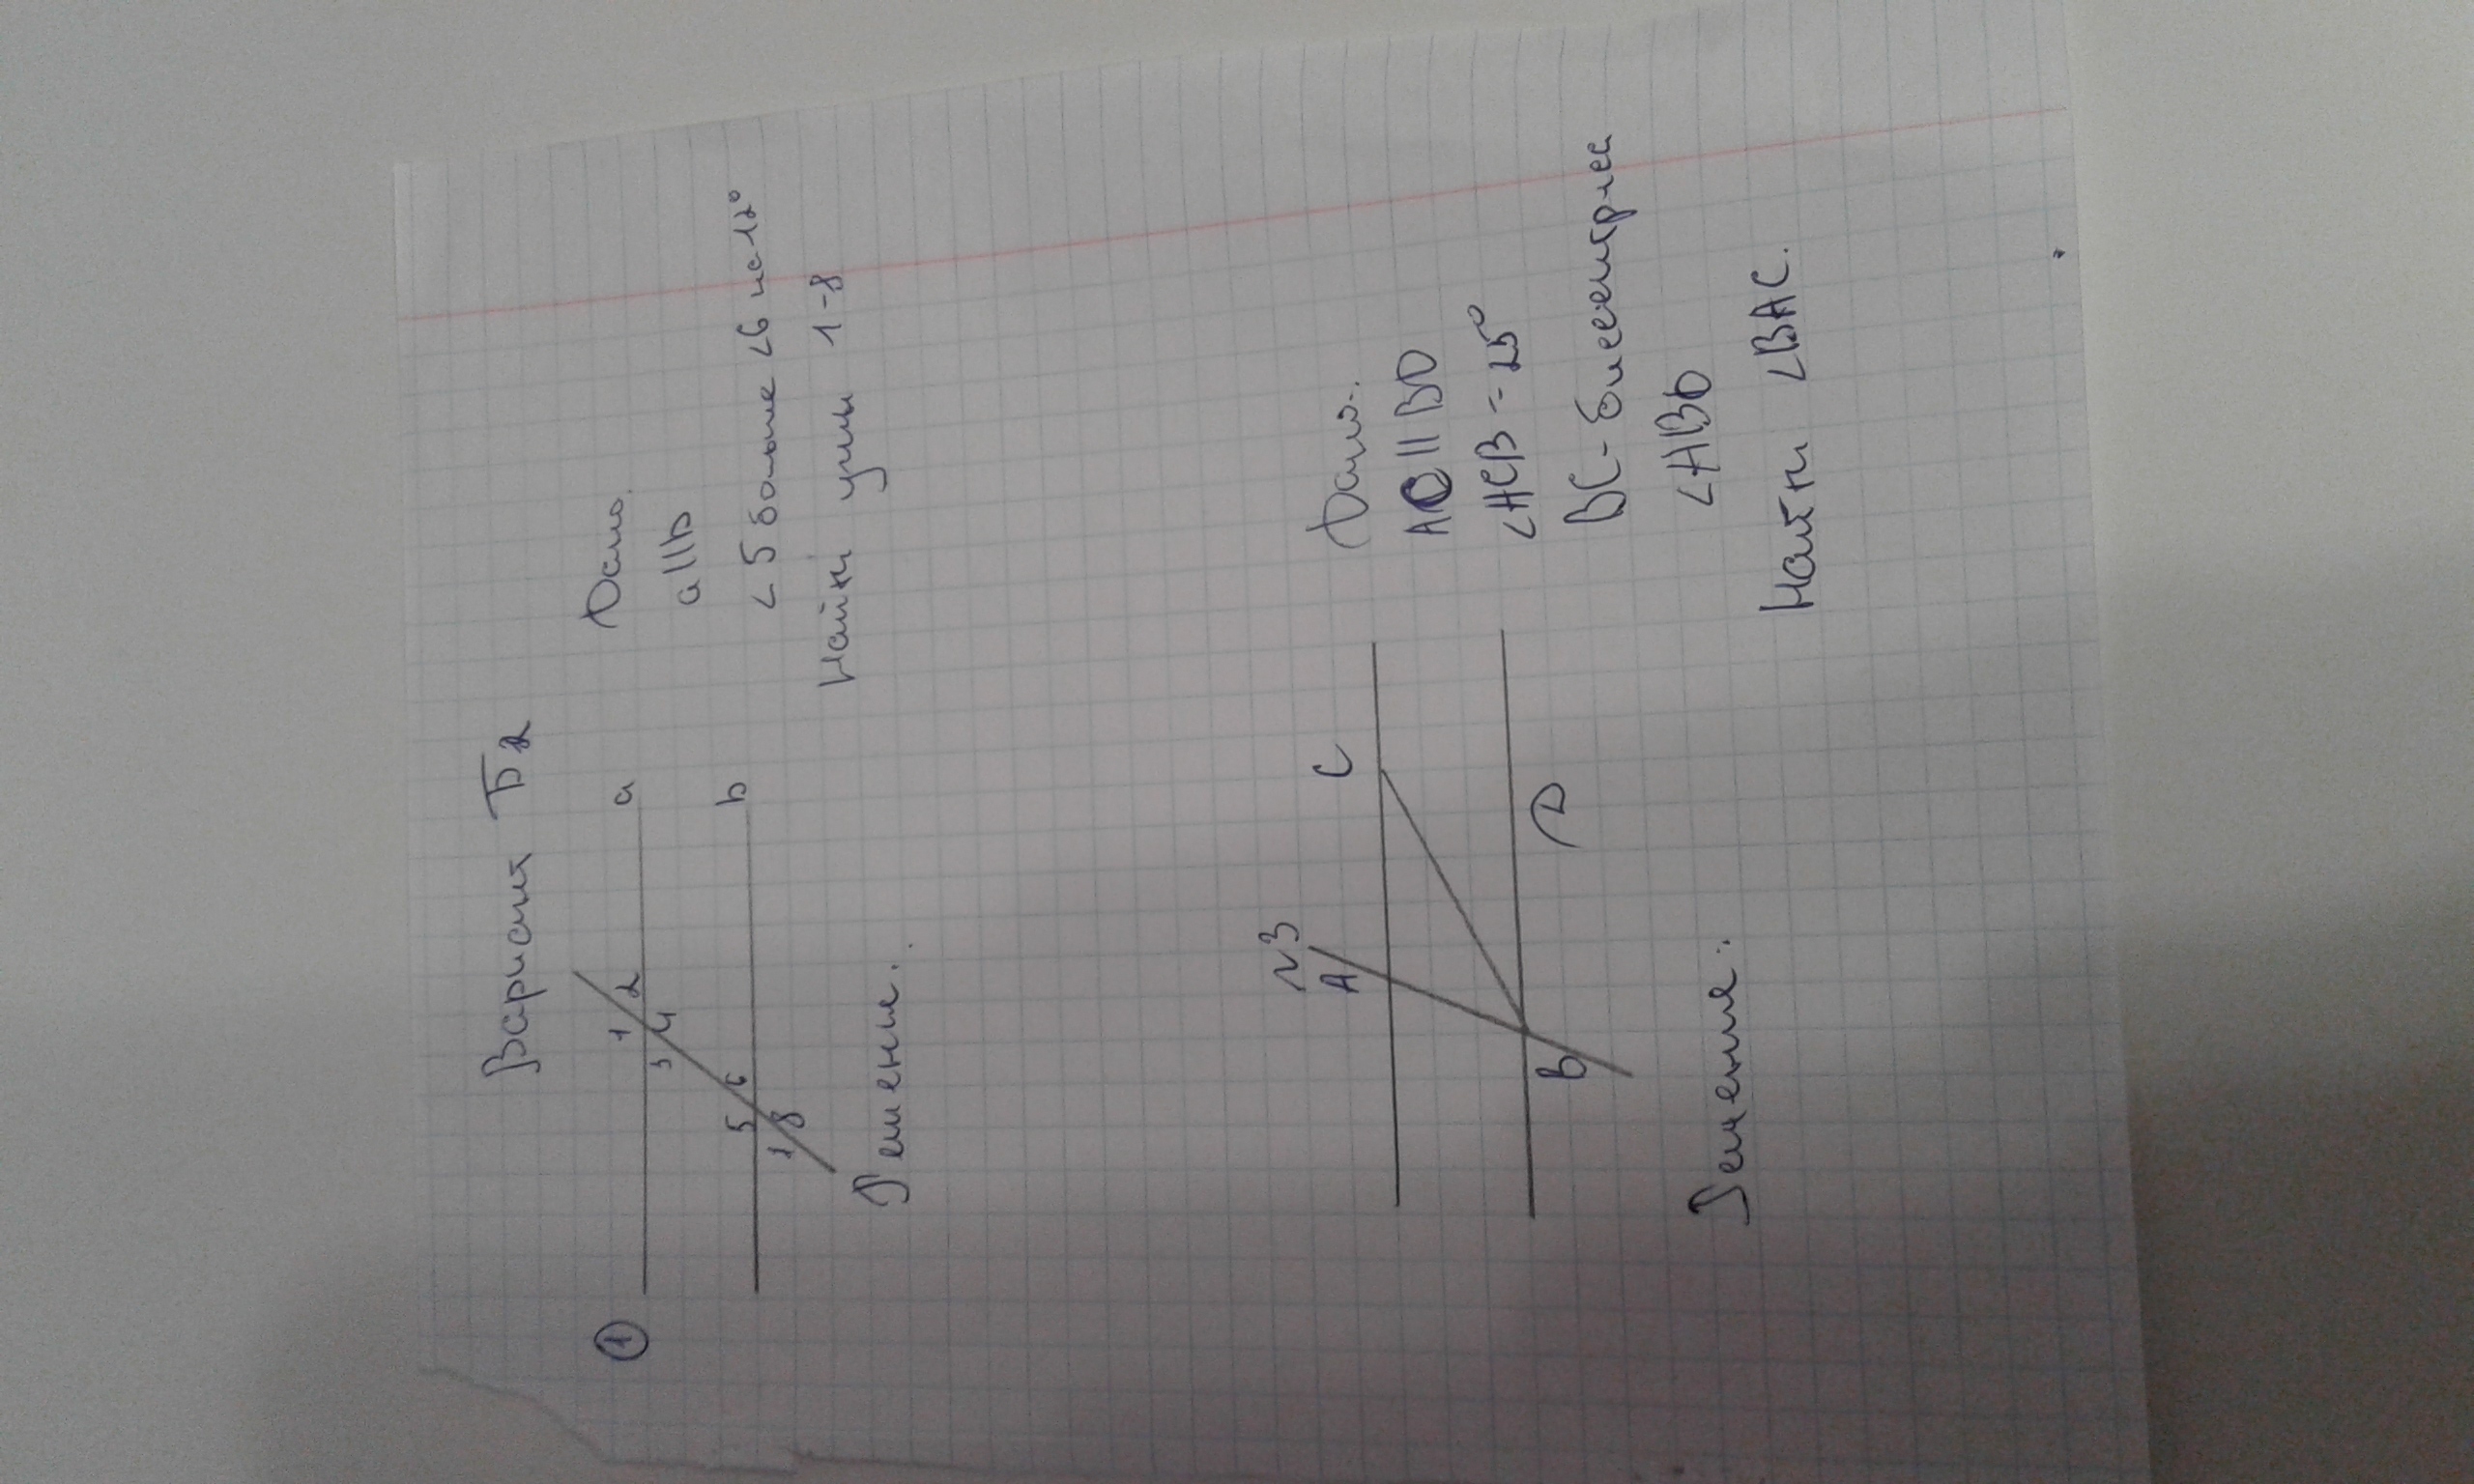 Вариант Б2
①
a
b
1 2
3 4
5 6
7 8
Дано.
a||b
∠5 больше ∠6 на 12°
Найти углы 1-8
Решение.
№3
A
C
B
D
Дано.
AC||BD
∠ACB = 25°
BC - биссектриса
∠ABD
Найти ∠BAC.
Решение: